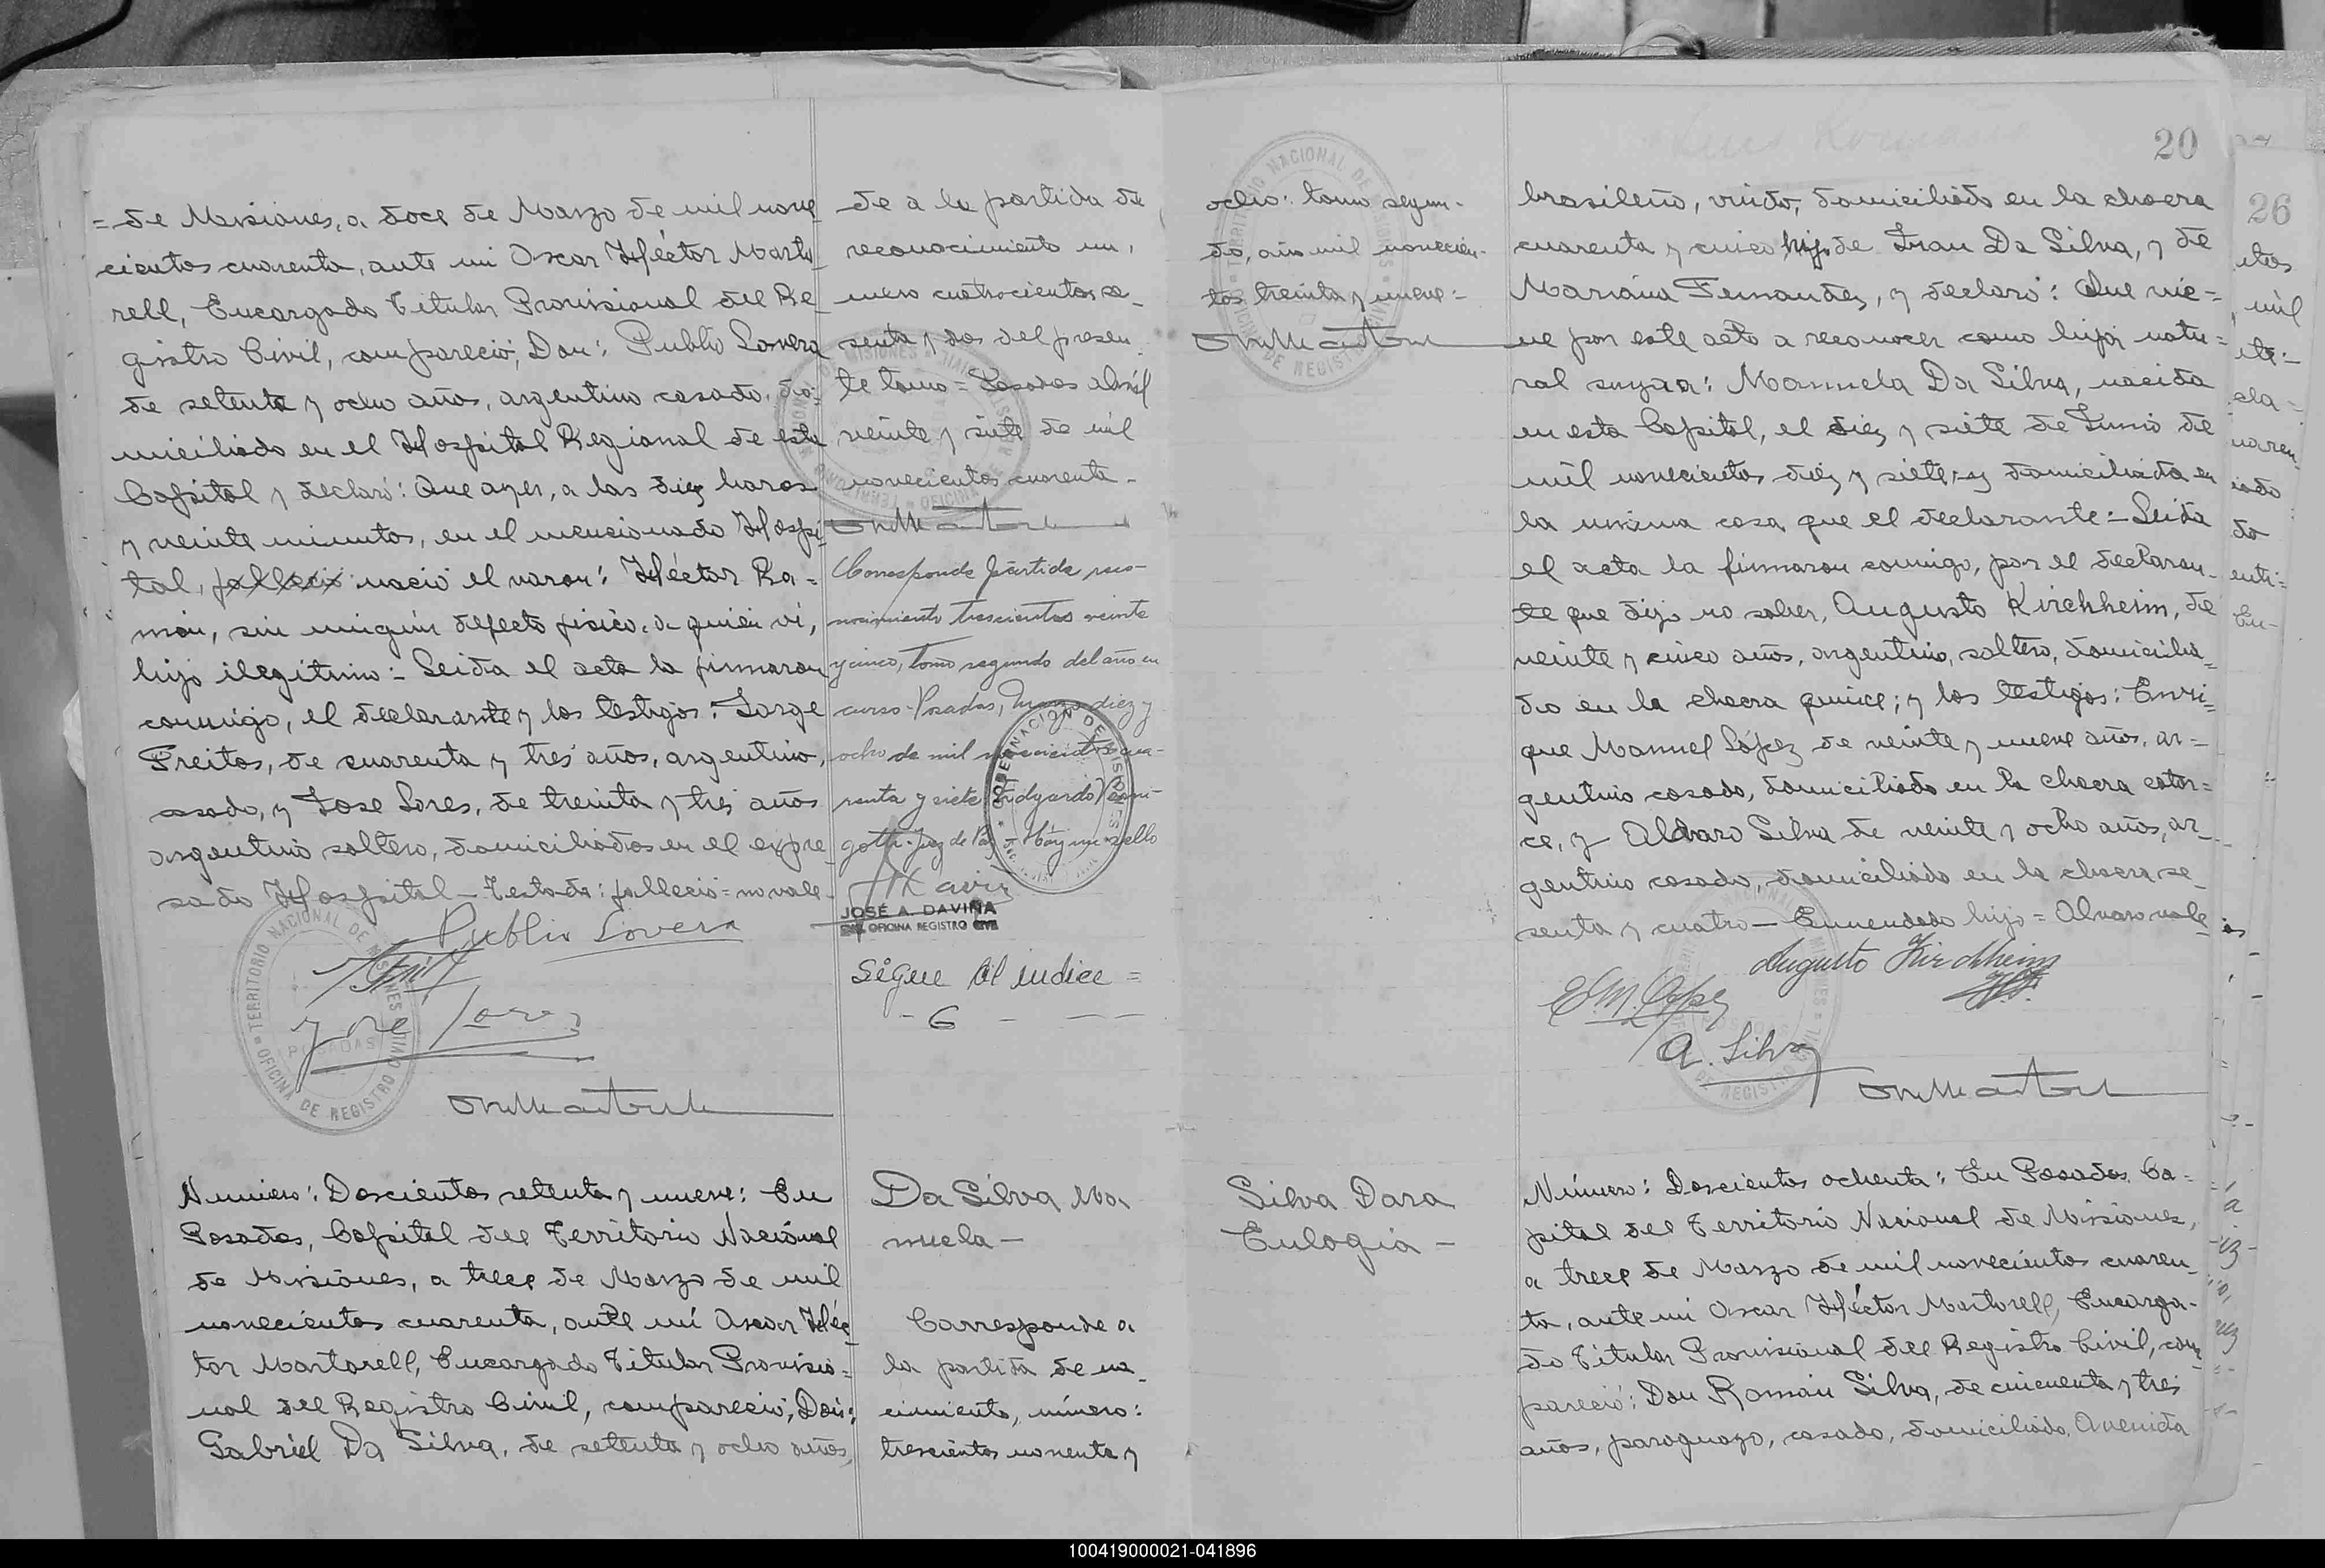 = de Misiones, a doce de Marzo de mil nove
cientos cuarenta, ante mi Oscar Héctor Marto
rell, Encargado Titular Provisional del Re
gistro Civil, compareció, Don: Publio Lovera
de setenta y ocho años, argentino casado, do=
miciliado en el Hospital Regional de esta
Capital y declaró: Que ayer, a las diez horas
y veinte minutos, en el mencionado Hospi
tal, falleció nació el varon: Héctor Ra=
món, sin ningún defecto fisico, a quien vi,
hijo ilegitimo:- Leida el acta la firmaron
conmigo, el declarante y los testigos: Jorge
Freitas, de cuarenta y tres años, argentino,
casado, y Jose Lores, de treinta y tres años
argentino soltero, domiciliados en el expre
sado Hospital - Testado: falleció = no vale -
Publio Lovera
Jose Lores
TERRITORIO NACIONAL DE MISIONES
POSADAS
OFICINA DE REGISTRO CIVIL
de a la partida de
reconocimiento nú,
mero cuatrocientos se_
senta y dos del presen_
te tomo = Posadas abril
veinte y siete de mil
novecientos cuarenta -
Corresponde partida reco-
nocimiento trescientos veinte
y cinco, Tomo segundo del año en
curso - Posadas, Marzo diez y
ocho de mil novecientos cua-
renta y siete
Juez de Paz - Hay un sello
GOBERNACION DE MISIONES
JOSÉ A. DAVIÑA
OFICINA REGISTRO CIVIL
Sigue al indice =
- 6 - - -
Número: Doscientos setenta y nueve: En
Posadas, Capital del Territorio Nacional
de Misiones, a trece de Marzo de mil
novecientos cuarenta, ante mí Oscar Héc
tor Martorell, Encargado Titular Provisio=
nal del Registro Civil, compareció, Don:
Gabriel Da Silva, de setenta y ocho años,
Da Silva Ma
nuela -
Corresponde a
la partida de na_
cimiento, número:
trescientos noventa y
ocho: tomo segun-
do, año mil novecien-
tos treinta y nueve:-
TERRITORIO NACIONAL DE MISIONES
OFICINA DE REGISTRO CIVIL
20
brasileño, viudo, domiciliado en la chacra
cuarenta y cinco, hijo de Juan Da Silva, y de
Mariana Fernandez, y declaró: Que vie-=
ne por este acto a reconocer como hija natu=
ral suya a: Manuela Da Silva, nacida
en esta Capital, el diez y siete de Junio de
mil novecientos diez y siete, y domiciliada en
la misma casa que el declarante:- Leida
el acta la firmaron conmigo, por el declaran_
te que dijo no saber, Augusto Kirchheim, de
veinte y cinco años, argentino, soltero, domicilia_
do en la chacra quince; y los testigos: Enri=
que Manuel López de veinte y nueve años, ar=
gentino casado, domiciliado en la chacra cator=
ce, y Alvaro Silva de veinte y ocho años, ar_
gentino casado, domiciliado en la chacra se_
senta y cuatro - Enmendado hijo = Alvaro vale
Augusto Kirchheim
E. M. López
A. Silva
Silva Dora
Eulogia -
Número: Doscientos ochenta: En Posadas, Ca-
pital del Territorio Nacional de Misiones,
a trece de Marzo de mil novecientos cuaren_
ta, ante mi Oscar Héctor Martorell, Encarga-
do Titular Provisional del Registro Civil, com_
pareció: Don Román Silva, de cincuenta y tres
años, paraguayo, casado, domiciliado, Avenida
26
mil
100419000021-041896